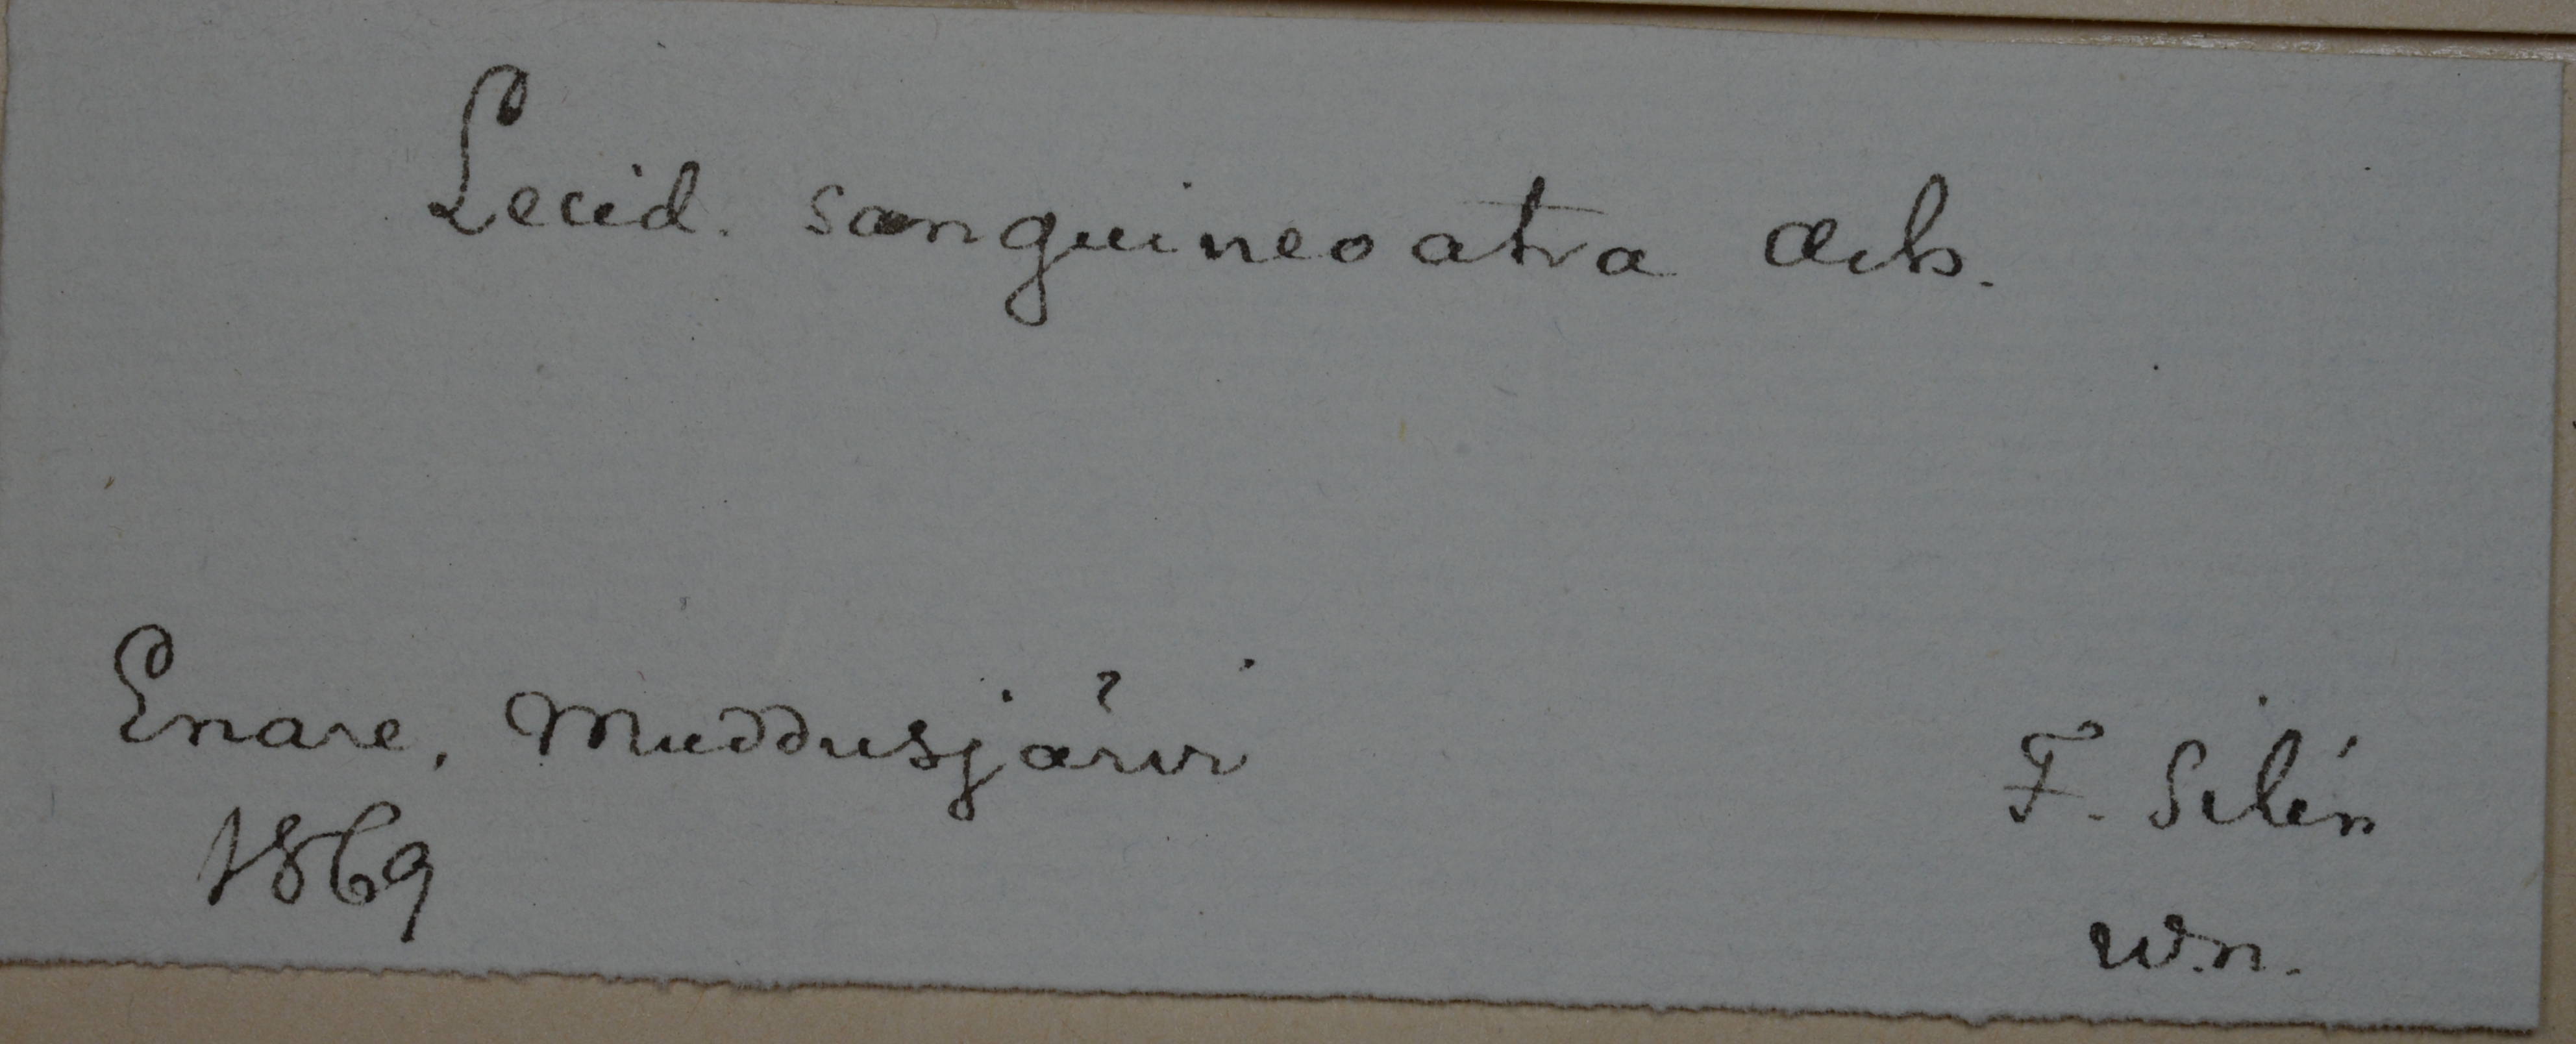 Lecid. sanguineoatra Ach.
Enare, Muddusjärvi
F. Silén
1869
W.n.